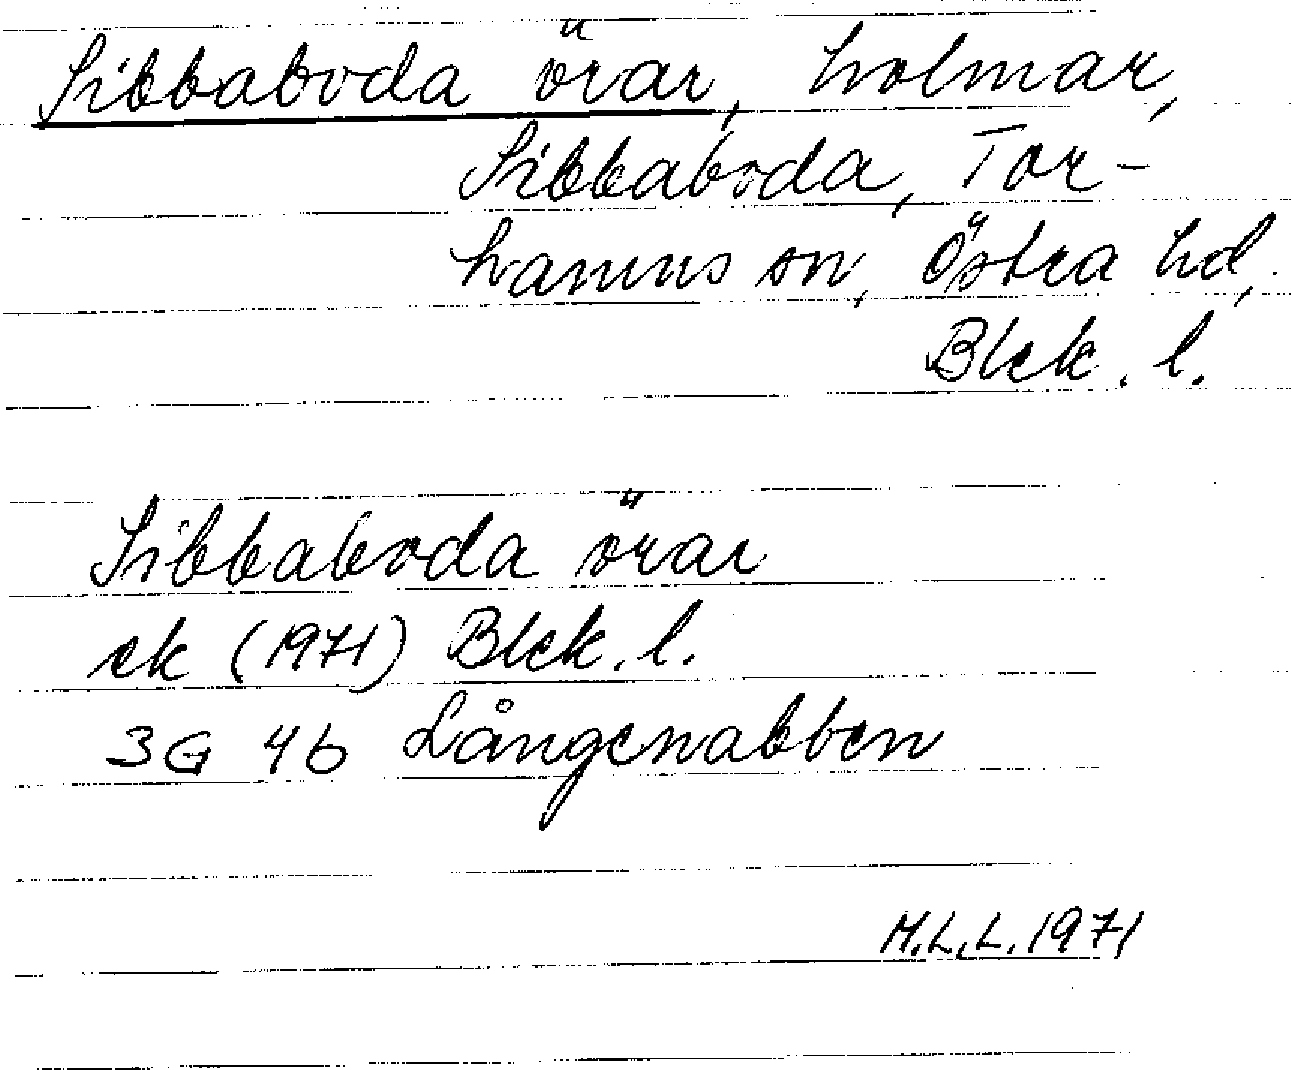 Sibbaboda örar, holmar,
Sibbaboda, Tor-
hamns sn, Östra hd,
Blek. l.
Sibbaboda örar
ek (1971) Blek. l.
3G 4b Långenabben
M.L.L. 1971